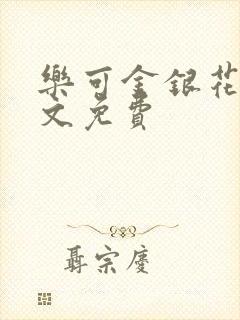 樂可金銀花
文免費
聶宗慶